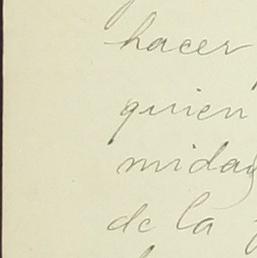 hacer
quien
midad
de la